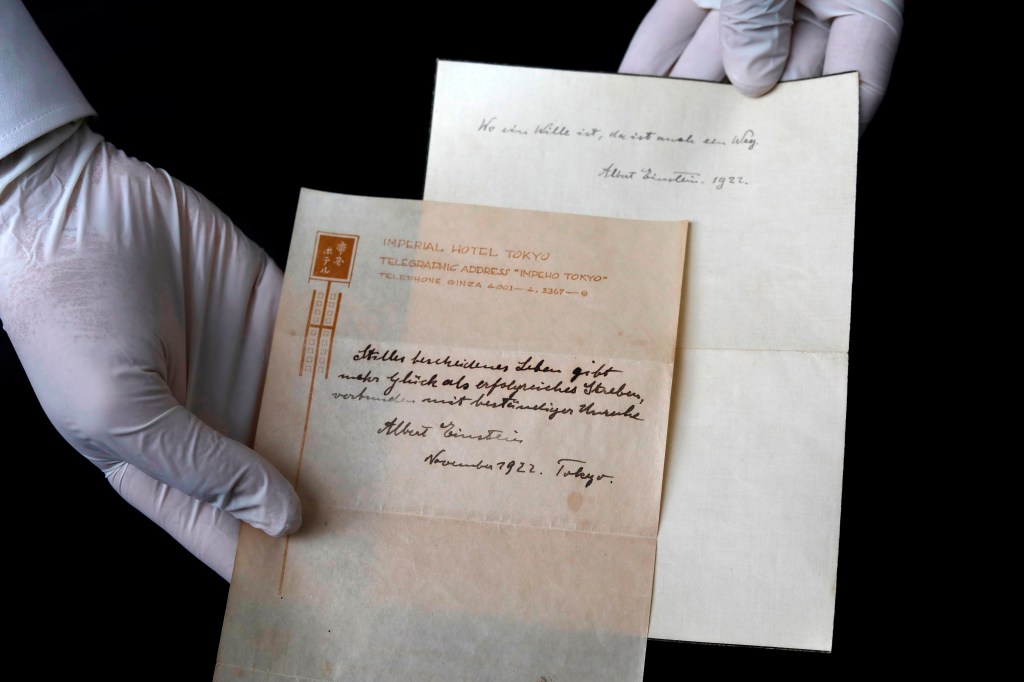 Wo ein Wille ist, da ist auch ein Weg.
Albert Einstein. 1922.
帝国
ホテル
IMPERIAL HOTEL TOKYO
TELEGRAPHIC ADDRESS "IMPEHO TOKYO"
TELEPHONE GINZA 4001—4, 2367—
Stilles bescheidenes Leben gibt
mehr Glück als erfolgreiches Streben,
verbunden mit beständiger Unruhe
Albert Einstein
November 1922. Tokyo.